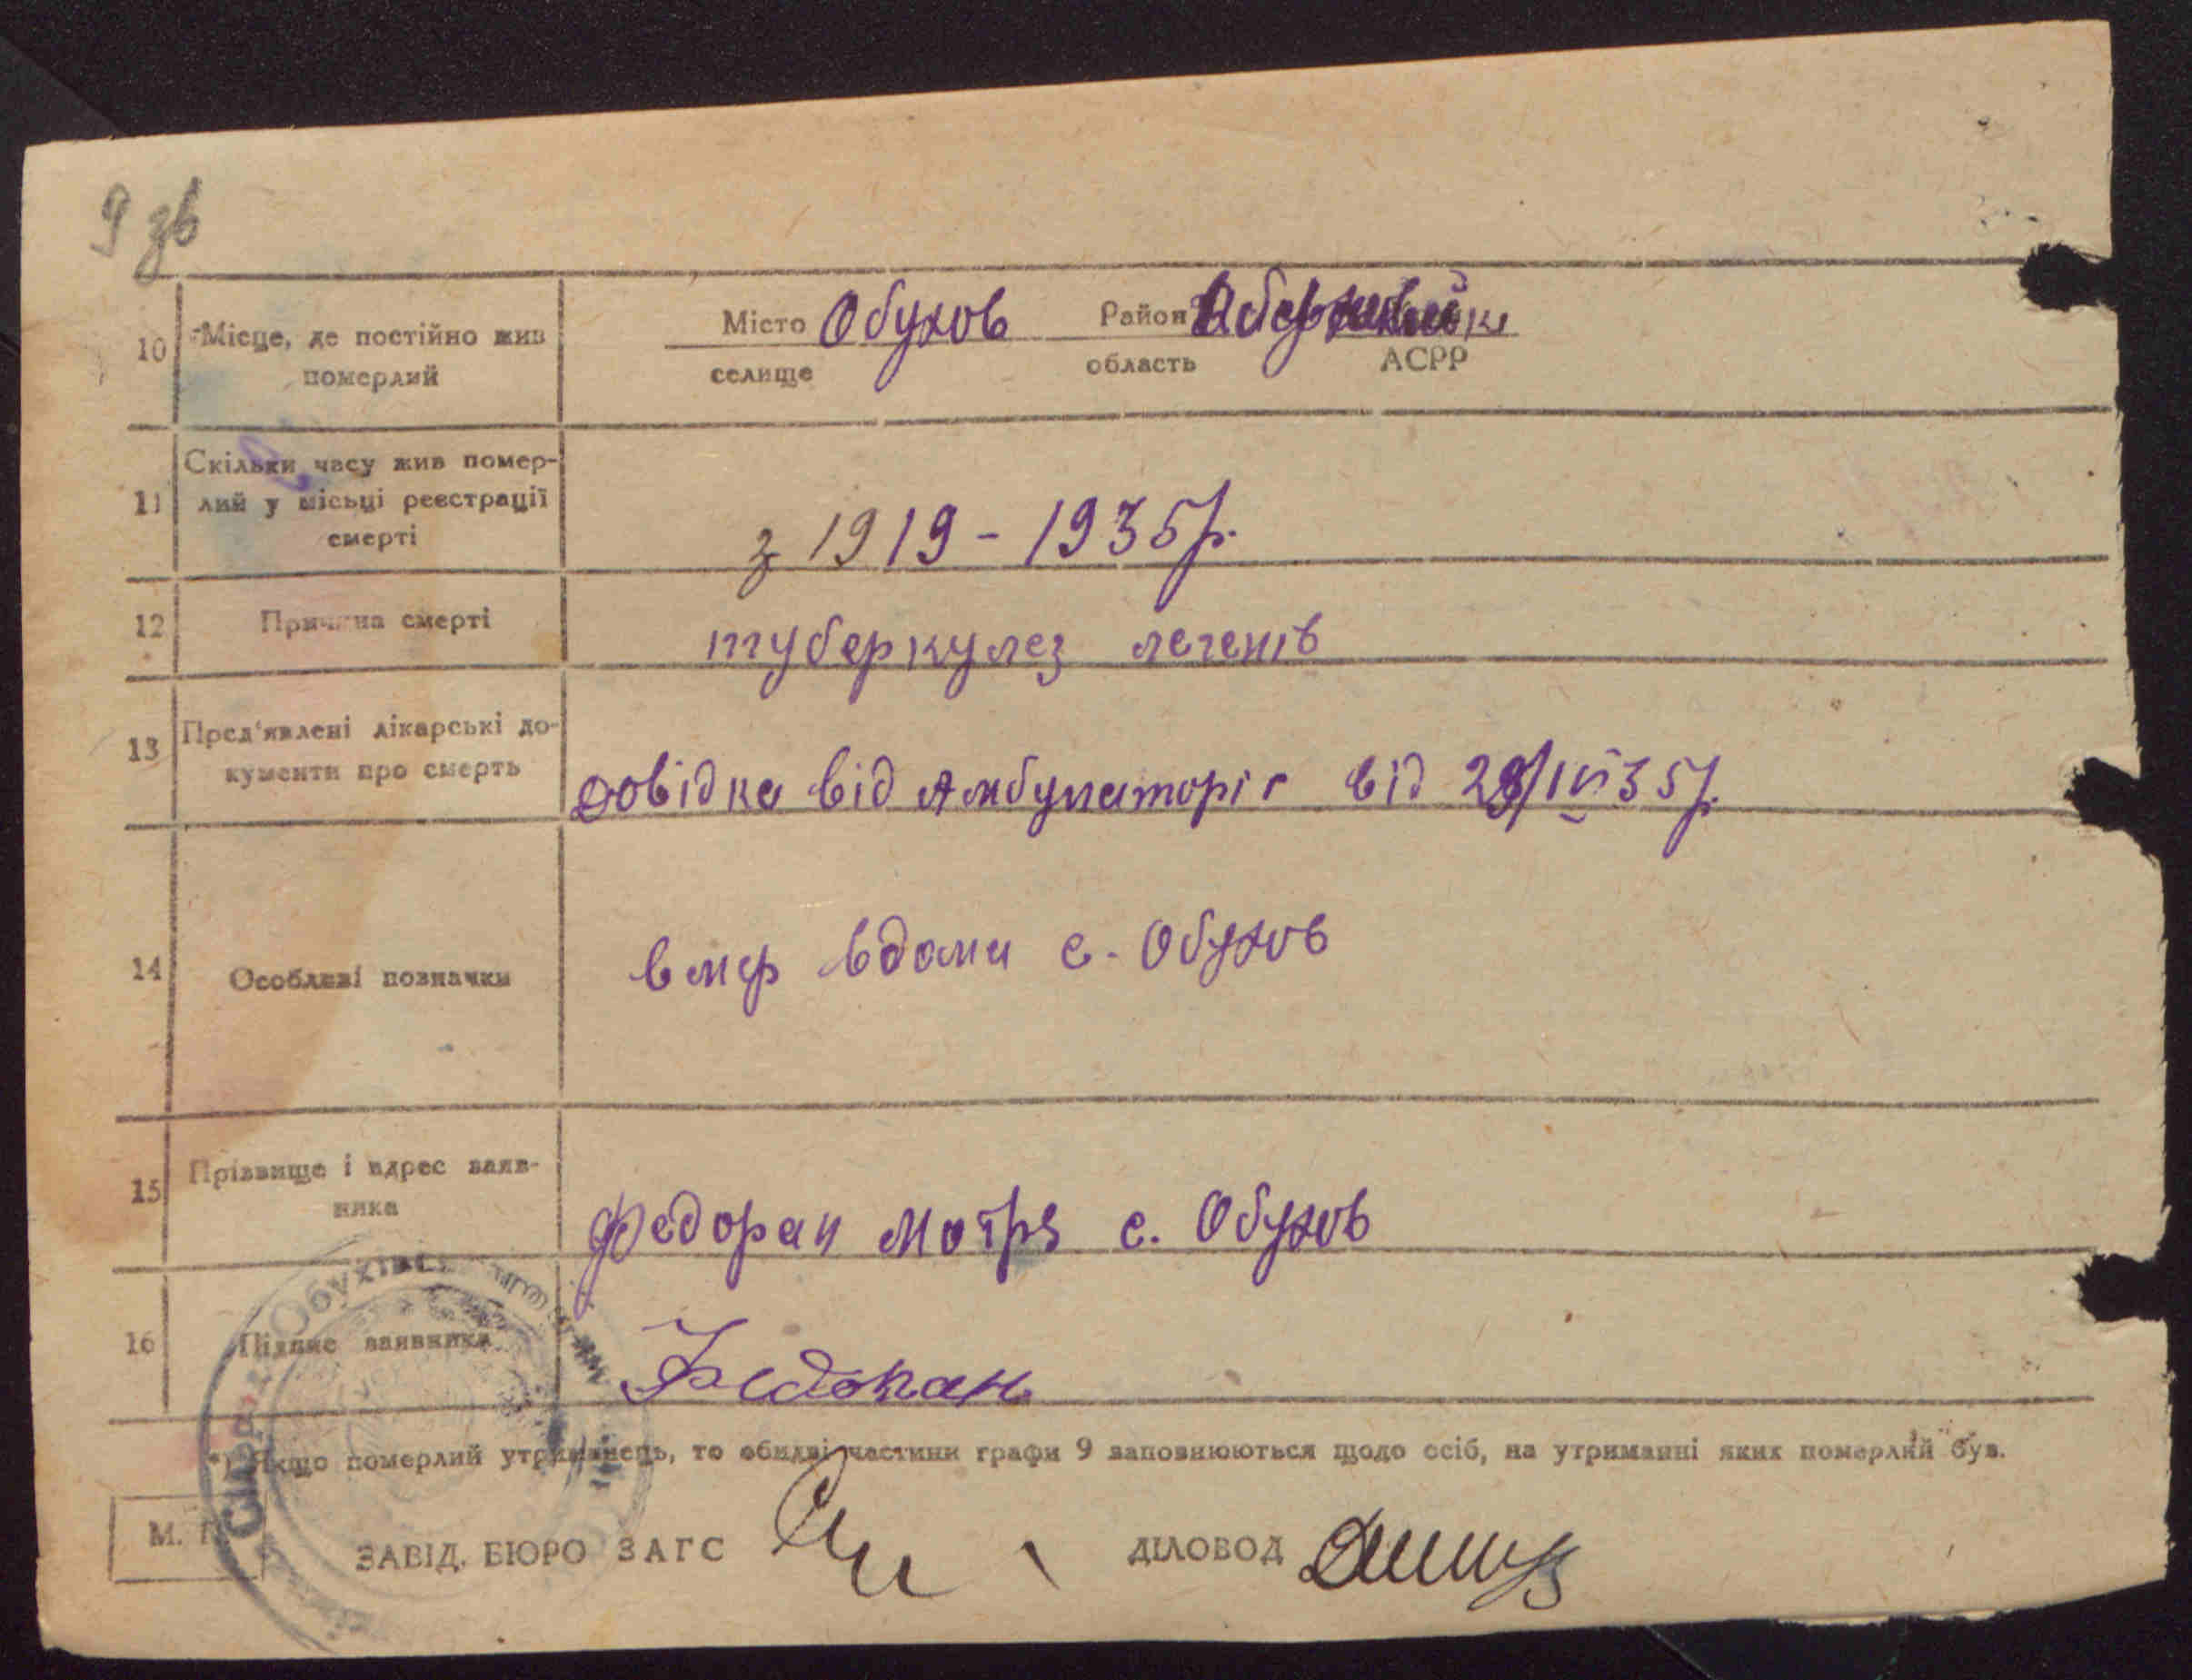 9 зв
10 Місце, де постійно жив померлий
Місто Обухов Район
селище область АСРР
11 Скільки часу жив помер-
лий у місьці реєстрації
смерті
з 1919 - 1935 р.
12 Причина смерті
туберкулез легенів
13 Пред'явлені лікарські до-
кументи про смерть
Довідка від Амбулаторіє від 35 р.
14 Особливі позначки
вмер вдома с. Обухов
15 Прізвище і адрес заяв-
ника
Федоран Мотря с. Обухов
16 Підпис заявника
Федоран
*) Якщо померлий утриманець, то обидві частини графи 9 заповнюються щодо осіб, на утриманні яких померлий був.
М. П.
ЗАВІД. БЮРО ЗАГС ДІЛОВОД